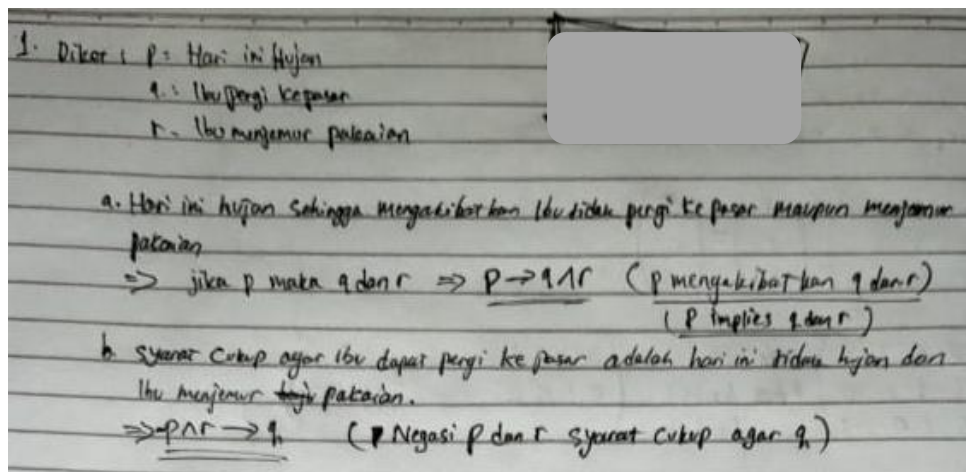 1. Diket : p = Hari ini Hujan
q = Ibu pergi kepasar
r = Ibu menjemur pakaian
a. Hari ini hujan sehingga mengakibatkan Ibu tidak pergi ke pasar maupun menjemur
pakaian
=> jika p maka q dan r => p → q ∧ r (p mengakibatkan q dan r)
(p implies q dan r)
b. syarat cukup agar ibu dapat pergi ke pasar adalah hari ini tidak hujan dan
Ibu menjemur pakaian.
=> ¬p ∧ r → q (Negasi p dan r syarat cukup agar q)